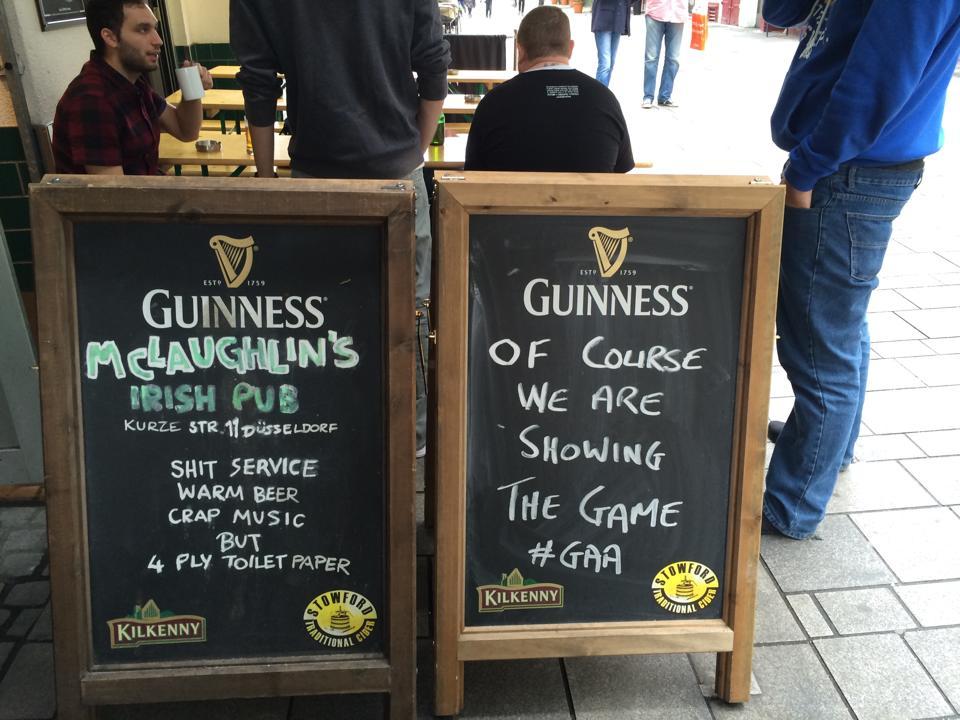 ESTD 1759
GUINNESS®
McLAUGHLIN'S
IRISH PUB
KURZE STR. 11 DÜSSELDORF
SHIT SERVICE
WARM BEER
CRAP MUSIC
BUT
4 PLY TOILET PAPER
KILKENNY
STOWFORD
TRADITIONAL CIDER
ESTD 1759
GUINNESS®
OF COURSE
WE ARE
SHOWING
THE GAME
#GAA
KILKENNY
STOWFORD
TRADITIONAL CIDER